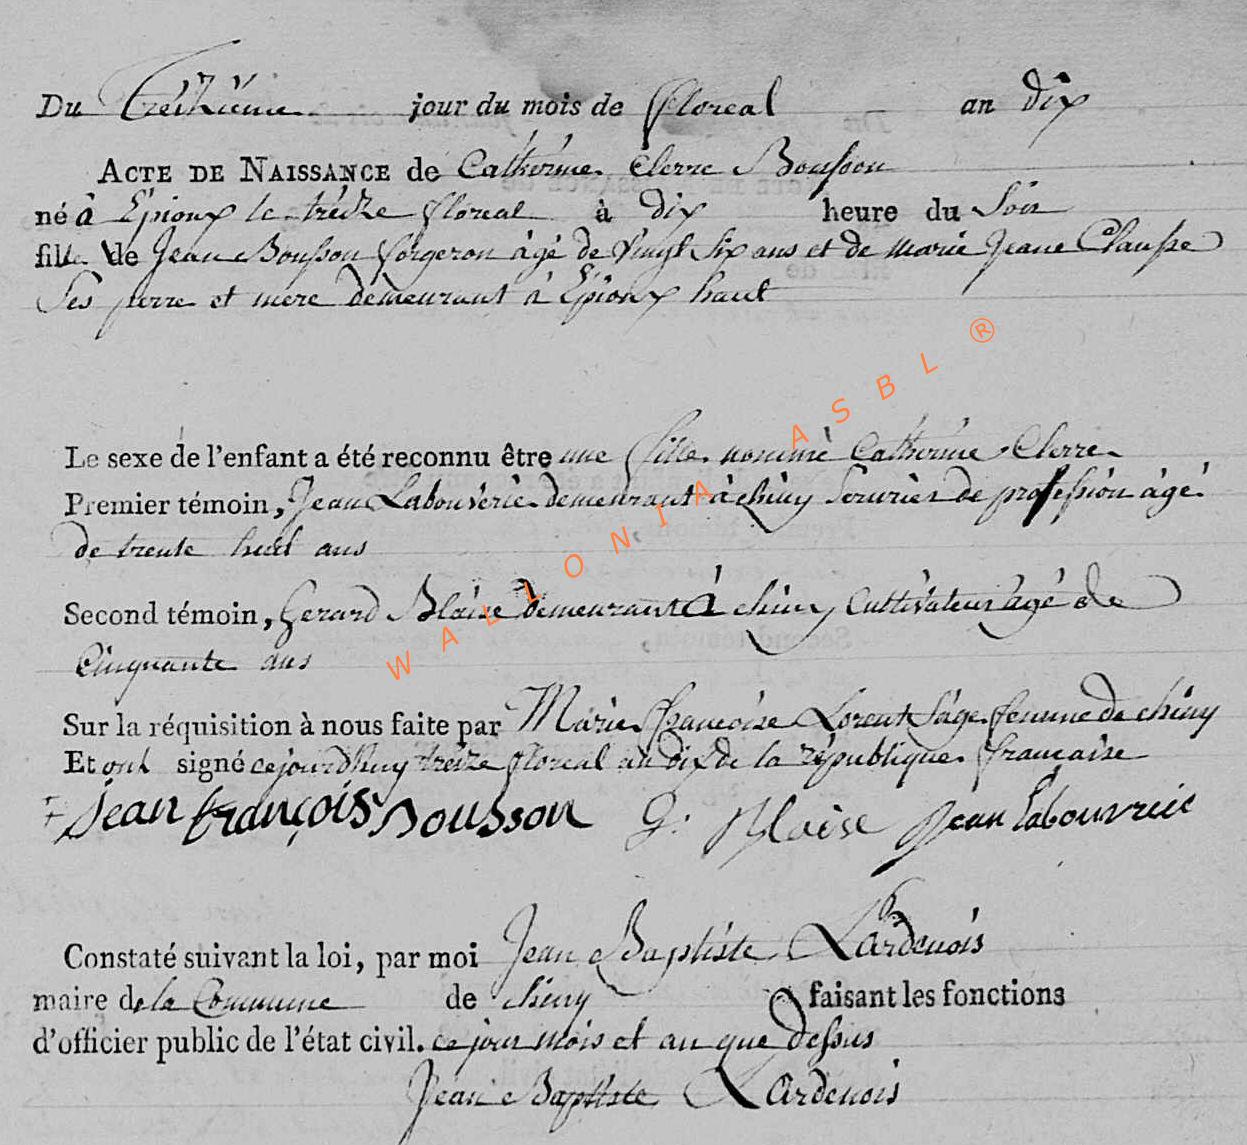 Du Trèzieme jour du mois de floreal an dix
ACTE DE NAISSANCE de Catherine Clerre Bousson
né à Epioux le treize floreal à dix heure du Soir
fille de Jean Bousson forgeron âgé de Vingt Six ans et de marie Jeane Clausse
Ses perre et mere demeurant à Epioux haut
Le sexe de l'enfant a été reconnu être une fille nommé Catherine Clerre
Premier témoin, Jean Labouverie demeurant à chiny Serurier de profession âgé
de trente huit ans
Second témoin, Gerard Blaise demeurant à chiny Cultivateur âgé de
Cinquante ans
Sur la réquisition à nous faite par Marie françoise Lorent Sage femme de chiny
Et ont signé cejourdhuy treize floreal an dix de la republique francaise
+ jean françois Bousson G: Blaise Jean Labouvrië
Constaté suivant la loi, par moi Jean Baptiste Lardenois
maire de la Commune de chiny faisant les fonctions
d'officier public de l'état civil. ce jour mois et an que dessus
Jean Baptiste Lardenois
WALLONIA ASBL ®